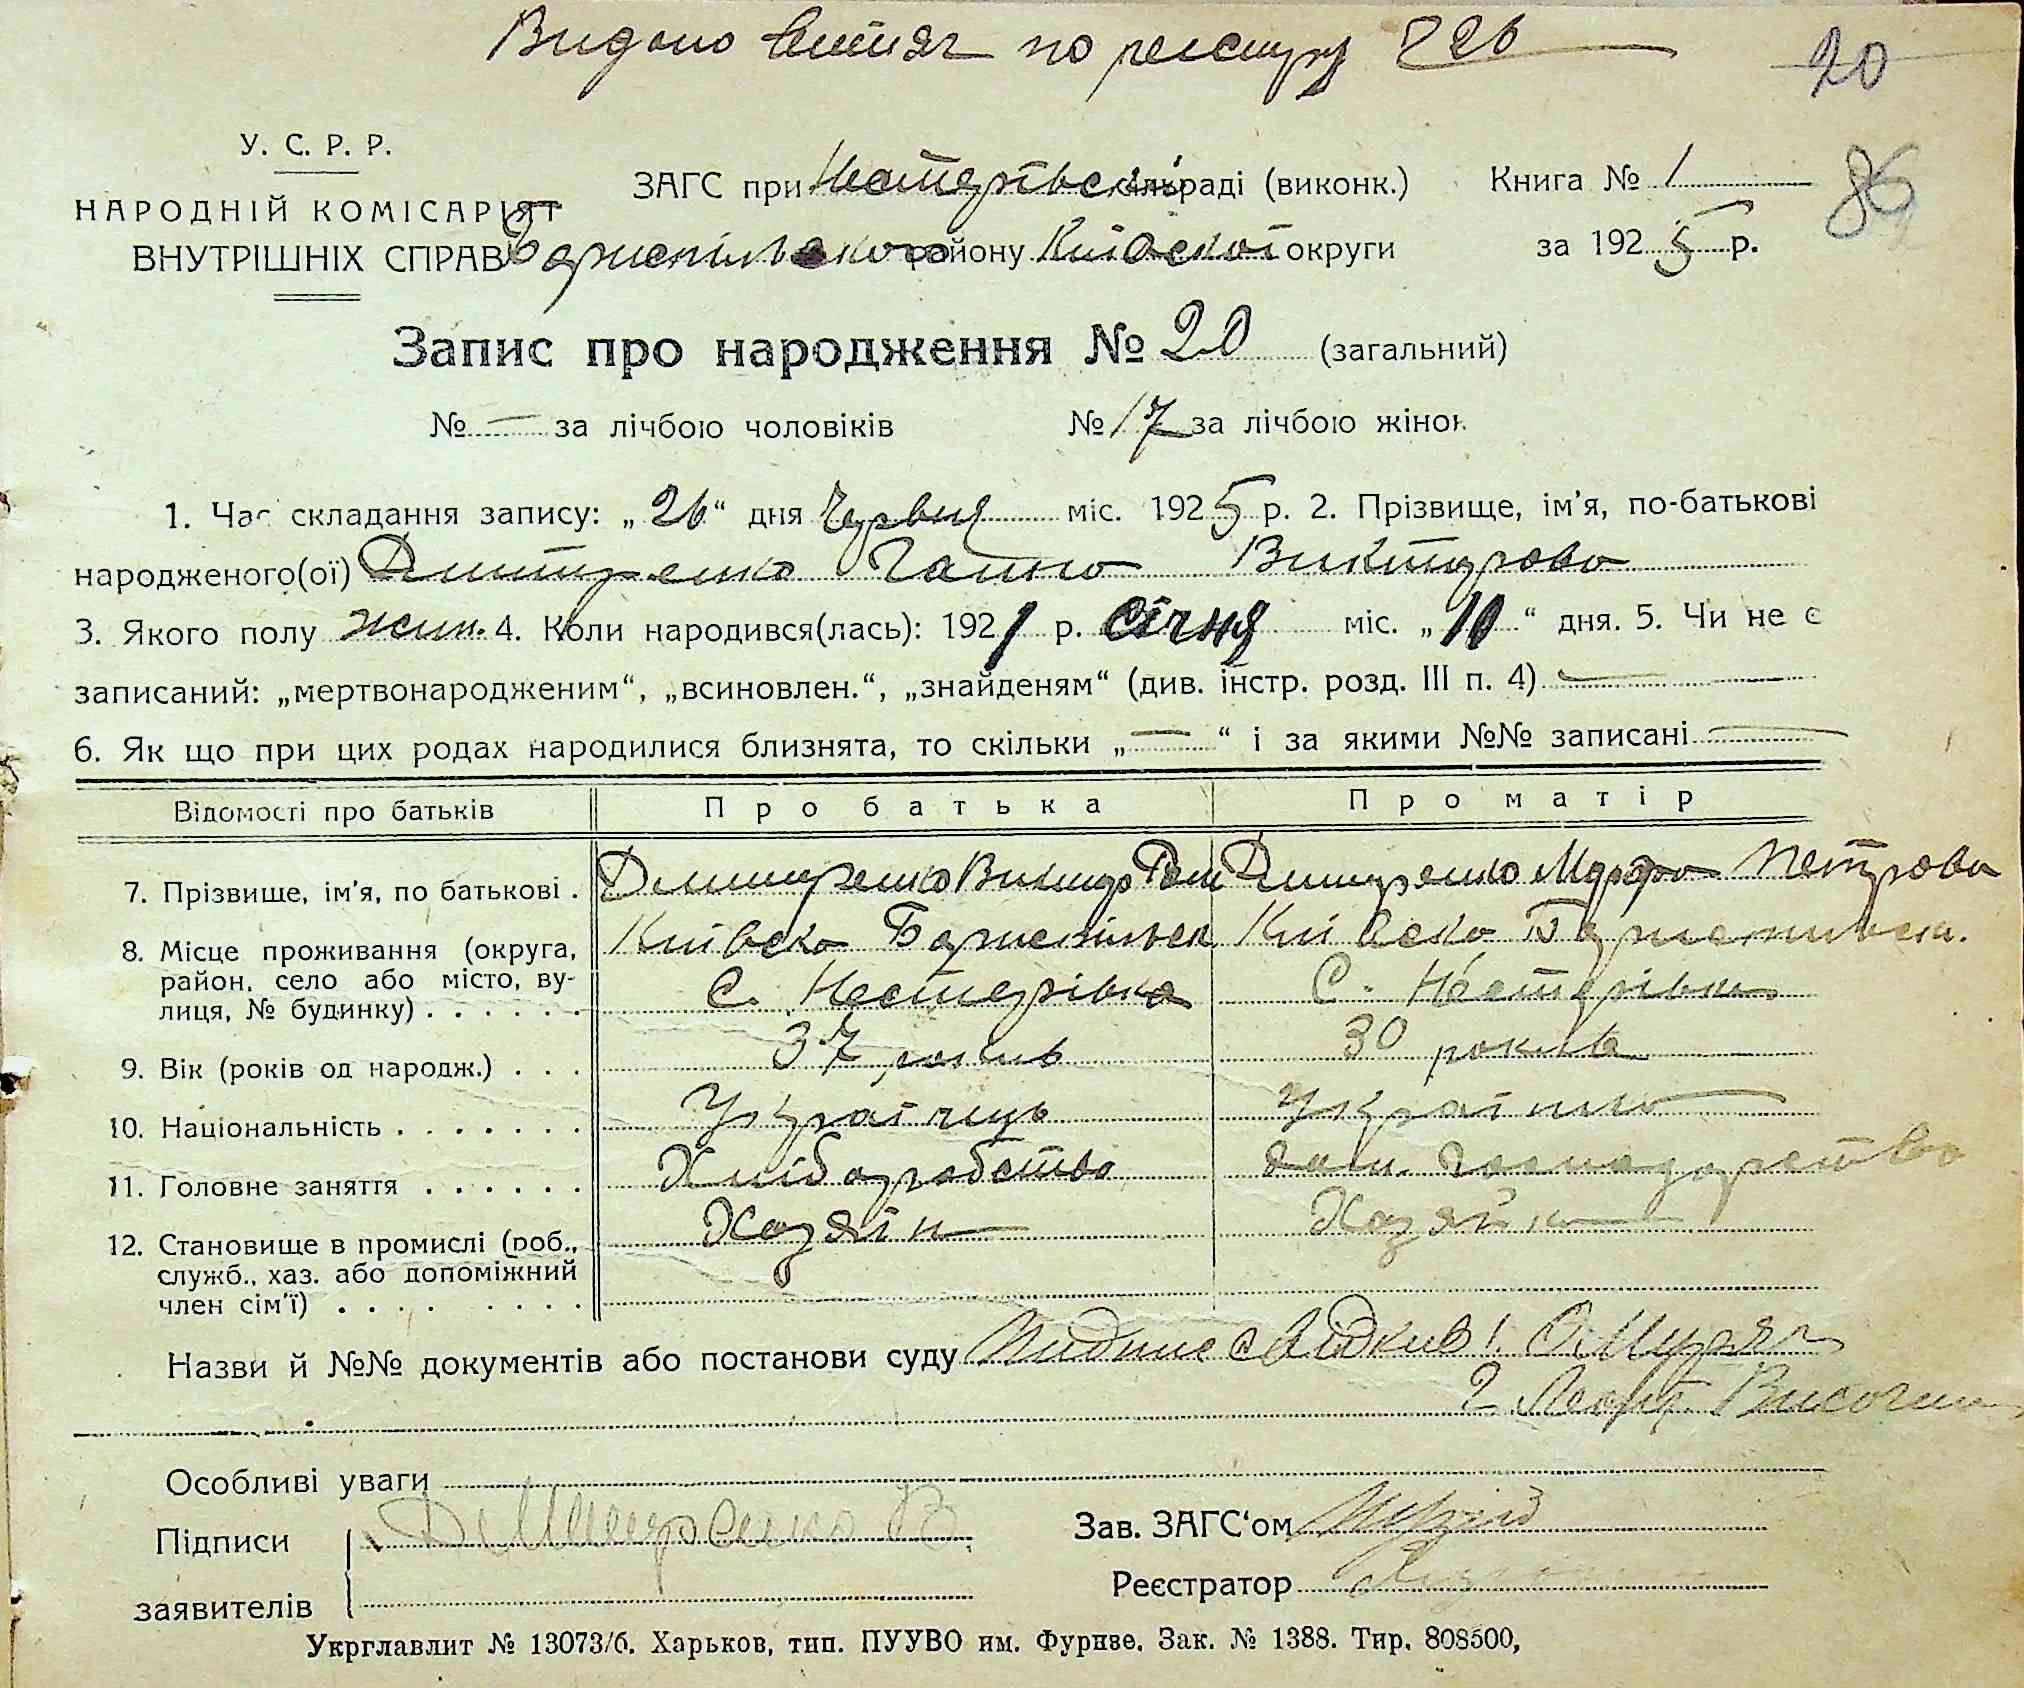 Видано витяг по реєстру 226
20
У. С. Р. Р.
ЗАГС при Нестерівськ сільраді (виконк.) Книга № 1
86
НАРОДНІЙ КОМІСАРІЯТ
ВНУТРІШНІХ СПРАВ Бориспільского району Київскої округи за 1925 р.
Запис про народження № 20 (загальний)
№ — за лічбою чоловіків № 17 за лічбою жінок
1. Час складання запису: „26“ дня Червня міс. 1925 р. 2. Прізвище, ім'я, по-батькові
народженого(ої) Дмитренко Ганна Викторова
3. Якого полу жин. 4. Коли народився(лась): 1921 р. січня міс. „10“ дня. 5. Чи не є
записаний: „мертвонародженим“, „всиновлен.“, „знайденям“ (див. інстр. розд. III п. 4) —
6. Як що при цих родах народилися близнята, то скільки „—“ і за якими №№ записані —
Відомості про батьків Про батька Про матір
7. Прізвище, ім'я, по батькові . Дмитренко Виктор Дмитренко Марфа Петрова
8. Місце проживання (округа, Київска Бориспільск Київска Бориспильск.
район, село або місто, ву- с. Нестерівка С. Нестерівка
лиця, № будинку) . . . . . .
9. Вік (років од народж.) . . . 37 років 30 років
10. Національність . . . . . . . Українець Українка
11. Головне заняття . . . . . . Хліборобство дом. господарство
12. Становище в промислі (роб., Хазяїн Хазяйка
служб., хаз. або допоміжний
член сім'ї) . . . . . . . .
Назви й №№ документів або постанови суду Пидпис свидкив 1.
2. Височин
Особливі уваги
Підписи Дмитренко В. Зав. ЗАГС‘ом
Реєстратор
заявителів
Укрглавлит № 13073/б. Харьков, тип. ПУУВО им. Фрунзе. Зак. № 1388. Тир. 808500,